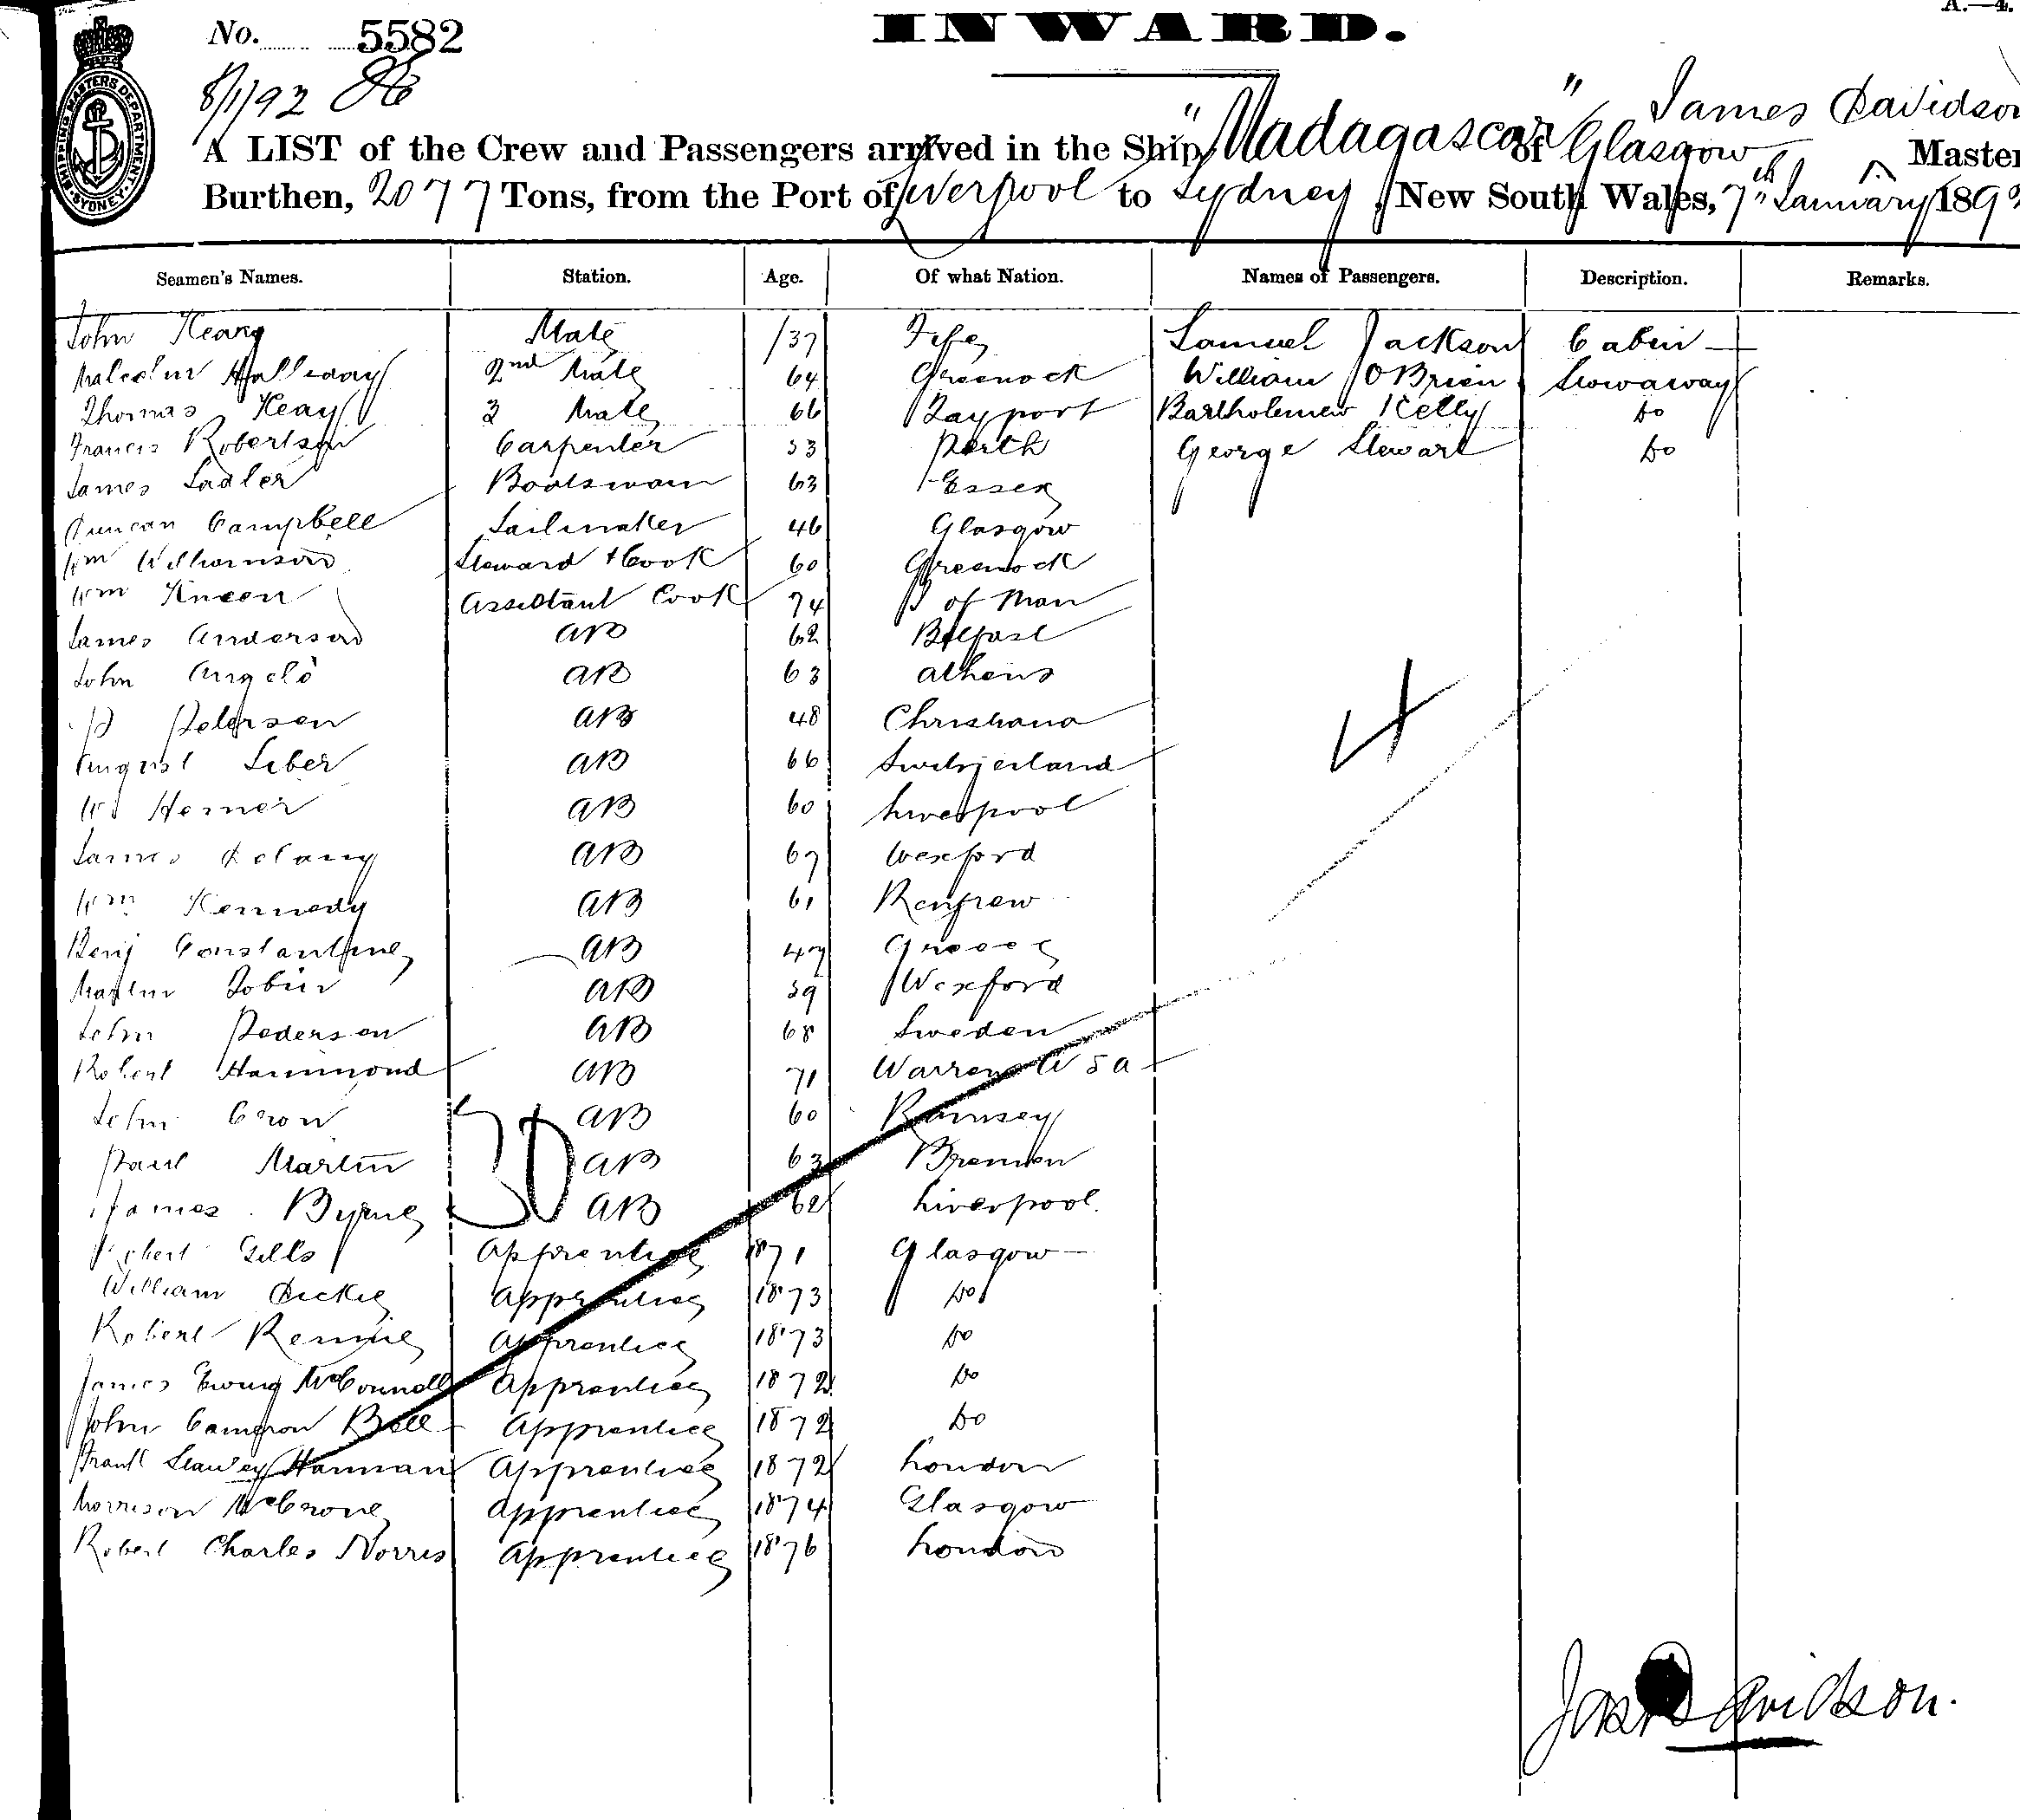 A.—4.
No. 5582
INWARD.
8/1/92
SHIPPING MASTERS DEPARTMENT SYDNEY
"Madagascar" James Davidson
A LIST of the Crew and Passengers arrived in the Ship Madagascar of Glasgow Master
Burthen, 2077 Tons, from the Port of Liverpool to Sydney, New South Wales, 7th January 189
Seamen's Names. Station. Age. Of what Nation. Names of Passengers. Description. Remarks.
John Keay Mate /37 Fife Samuel Jackson Cabin
Malcolm Halliday 2nd Mate 64 Greenock William O'Brien Stowaway
Thomas Keay 3 Mate 66 Tayport Bartholemew Kelly Do
Francis Robertson Carpenter 53 Perth George Stewart Do
James Sadler Boatswain 63 Essex
Duncan Campbell Sailmaker 46 Glasgow
Wm Williamson Steward & Cook 60 Greenock
Wm Kneen Assistant Cook 74 I of Man
James Anderson AB 62 Belfast
John Angelo AB 63 Athens
P Petersen AB 48 Christiana
August Siber AB 66 Switzerland
Wm Horner AB 60 Liverpool
James Delany AB 67 Wexford
Wm Kennedy AB 61 Renfrew
Benj Constantine AB 47 Greece
Martin Tobin AB 59 Wexford
John Pedersen AB 68 Sweden
Robert Hammond AB 71 Warren U S A
John Crow AB 60 Ramsey
Paul Martin AB 63 Bremen
James Byrne AB 62 Liverpool.
30
4
Robert Gills Apprentice 1871 Glasgow
William Dickie Apprentice 1873 Do
Robert Rennie Apprentice 1873 Do
James Ewing McConnell Apprentice 1872 Do
John Cameron Bell Apprentice 1872 Do
Frank Harman Apprentice 1872 London
Morrison McCrone Apprentice 1874 Glasgow
Robert Charles Norris Apprentice 1876 London
Jas Davidson.